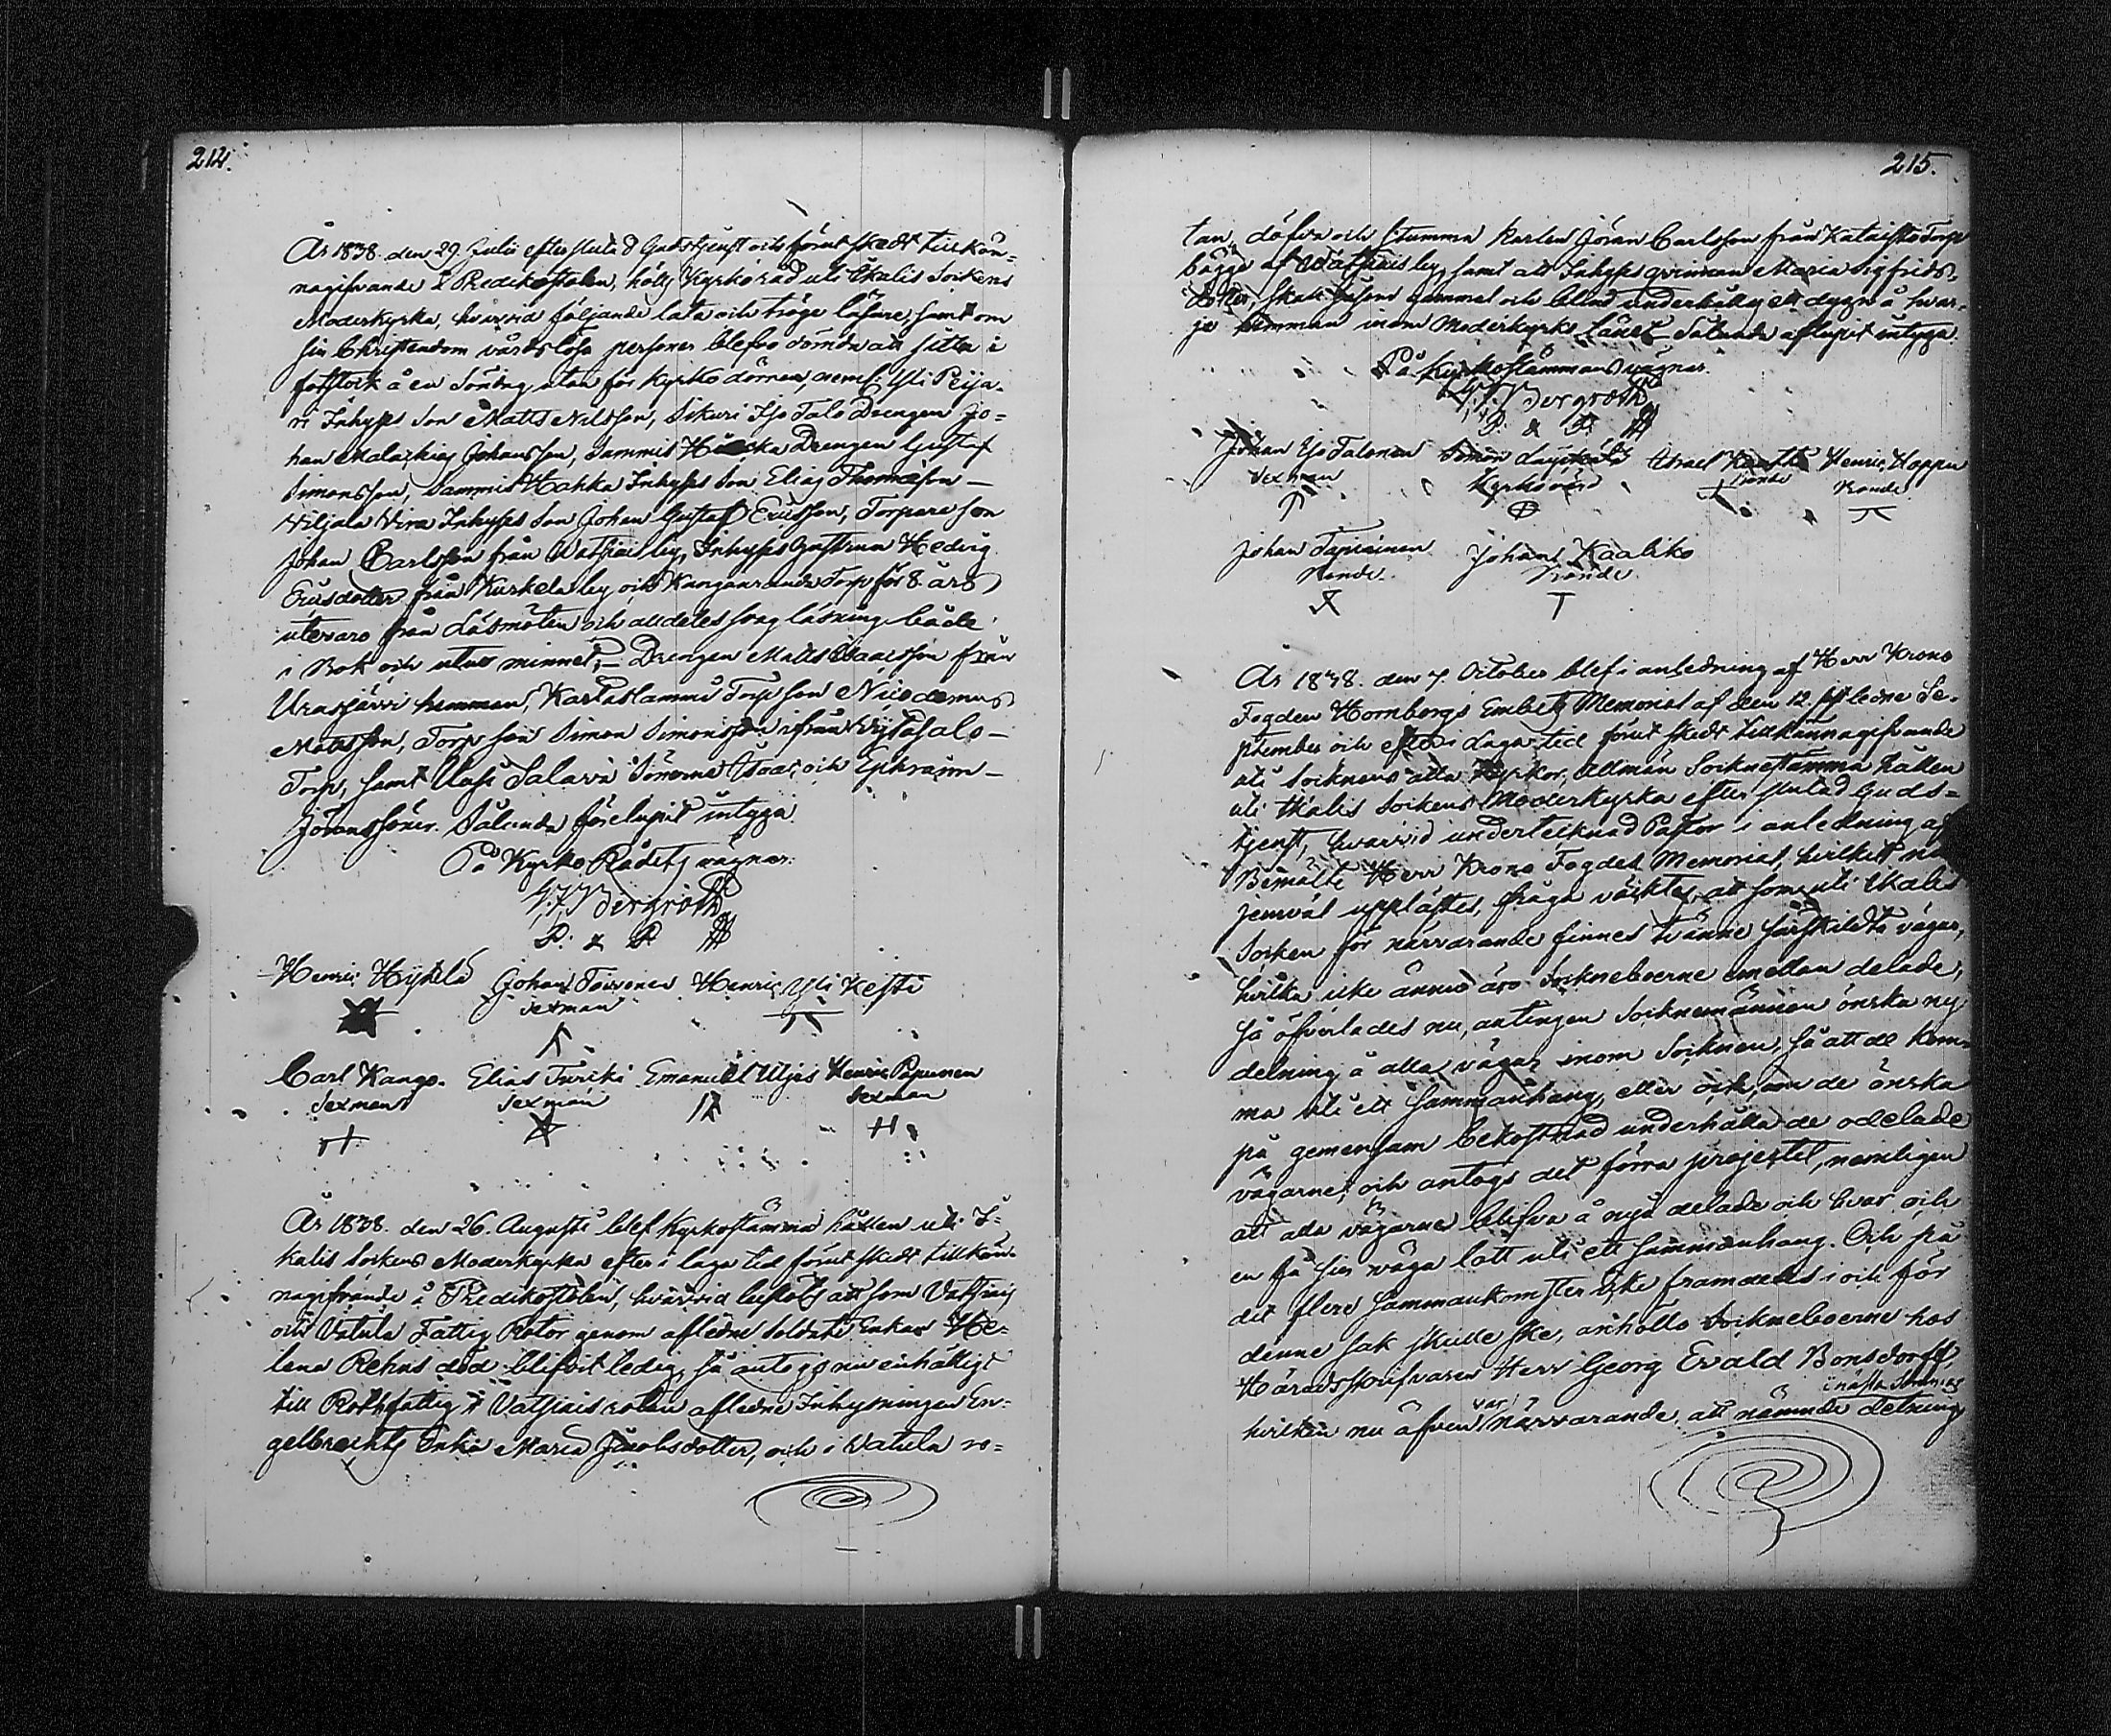 214.
År 1838. den 29. Julii efter slutad Gudstjenst och förut skedt tillkän-
nagifvande å Predikostolen, hölls Kyrko råd uti Ikalis Sockens
Moderkyrka, hvarvid följande lata och tröge läsare, samt om
sin Christendom vårdslösa personer blefvo dömda att sitta i
fotstock å en Söndag utan för Kyrko dörren, neml. Yli Peija-
ri Inhyses Son Matts Nilsson, Sikuri Iso Talo Drengen Jo-
han Malachias Johansson, Sammis Drengen Gustaf
Simonsson, Sammis Hahka Inhyses Son Elias Thomasson —
Viljala Wira Inhyses Son Johan Gustaf Ericsson, Torpare son
Johan Carlsson från Watsiais by, Inhyses Hedvig
Ericsdotter från Kurkela by och Kangaranda Torp för 8 års
utevaro från Läsmöten och alldeles svag läsning både
i Bok och utur minnet; — Drengen Matts Isacsson från
Urasjärvi hemman, Torp son Nicodemus
Mattsson, Torp son Simon Simonsson ifrån
Torp, samt Salava Sönerne Isac och Ephraim —
Jöranssöner. Sålunda förelupit intyga
På Kyrko Rådets vägnar:
G. F. J. Bergroth
P. & P.
Henric Hyskla Johan Toivonen Henric Yli Kesti
Sexman
Carl Kango. Elias Turiki Emanuel Uljas Henric Papunen
Sexman Sexman Sexman
År 1838. den 26. Augusti blef Kyrkostämma hållen uti I-
kalis Sockens Moderkyrka efter i laga tid förut skedt tillkän-
nagifvande å Predikostolen, hvarvid beslöts att som Vatsiais
och Vatula Fattig Rotor genom aflidne Soldats Enkan He-
lena Rehns död blifvit ledig, så antogs nu enhälligt
till Rothfattig i Vatsiais rotan aflidne Inhysningen En-
gelbrechts Enka Maria Jacobsdotter, och i Vatula ro-
215.
tan, döfva och stumma Karlen Jöran Carlsson från Torp
bägge af Watsiais by, samt att Inhyses qvinnan Maria Sigfrids-
dotter, skall såsom gammal och blind underhållas ett dygn å hvar-
je hemman inom Moderkyrko Länet. Sålunda aflupit intyga.
På Kyrkostämmans vägnar.
G. F. J. Bergroth
P. & P.
Johan Iso Talonen Simon Israel Henric Hoppu
Sexman Kyrkovärd Bonde Bonde
Johan Tapiainen Johan Kaaliko
Bonde. Bonde.
År 1838. den 7. October blef i anledning af Herr Krono
Fogden Hornborgs Embets Memorial af den 12. sistledne Se-
ptember och efter i Laga tid förut skedt tillkännagifvande
uti Socknens alla Kyrkor, Allmän Sockne stämma hållen
uti Ikalis Sockens Moderkyrka efter slutad Guds-
tjenst, hvarvid undertecknad Pastor i anledning af
Bemälte Herr Krono Fogdes Memorial, hvilket nu
jemväl upplästes, fråga väcktes, att som uti Ikalis
Socken för närvarande finnes tvänne särskildta vägar,
hvilka icke ännu äro Sockneboerne emellan delade,
så öfverlades nu, antingen Socknemännen önska ny
delning å alla vägar inom Socknen, så att de kom-
ma uti ett sammanhang, eller och, om de önska
på gemensam bekostnad underhålla de odelade
vägarne; och antogs det förra projectet, nemligen
att alla vägarne blifva å nyo delade och hvar och
en få sin väga lott uti ett sammanhang. Och på
det flere sammankomster icke framdeles i och för
denne sak skulle ske, anhöllo Sockneboerne hos
Häradsskrifvaren Herr Georg Evald Bonsdorff,
i nästa Sommar
hvilken nu äfven var närvarande, att nämnde delning